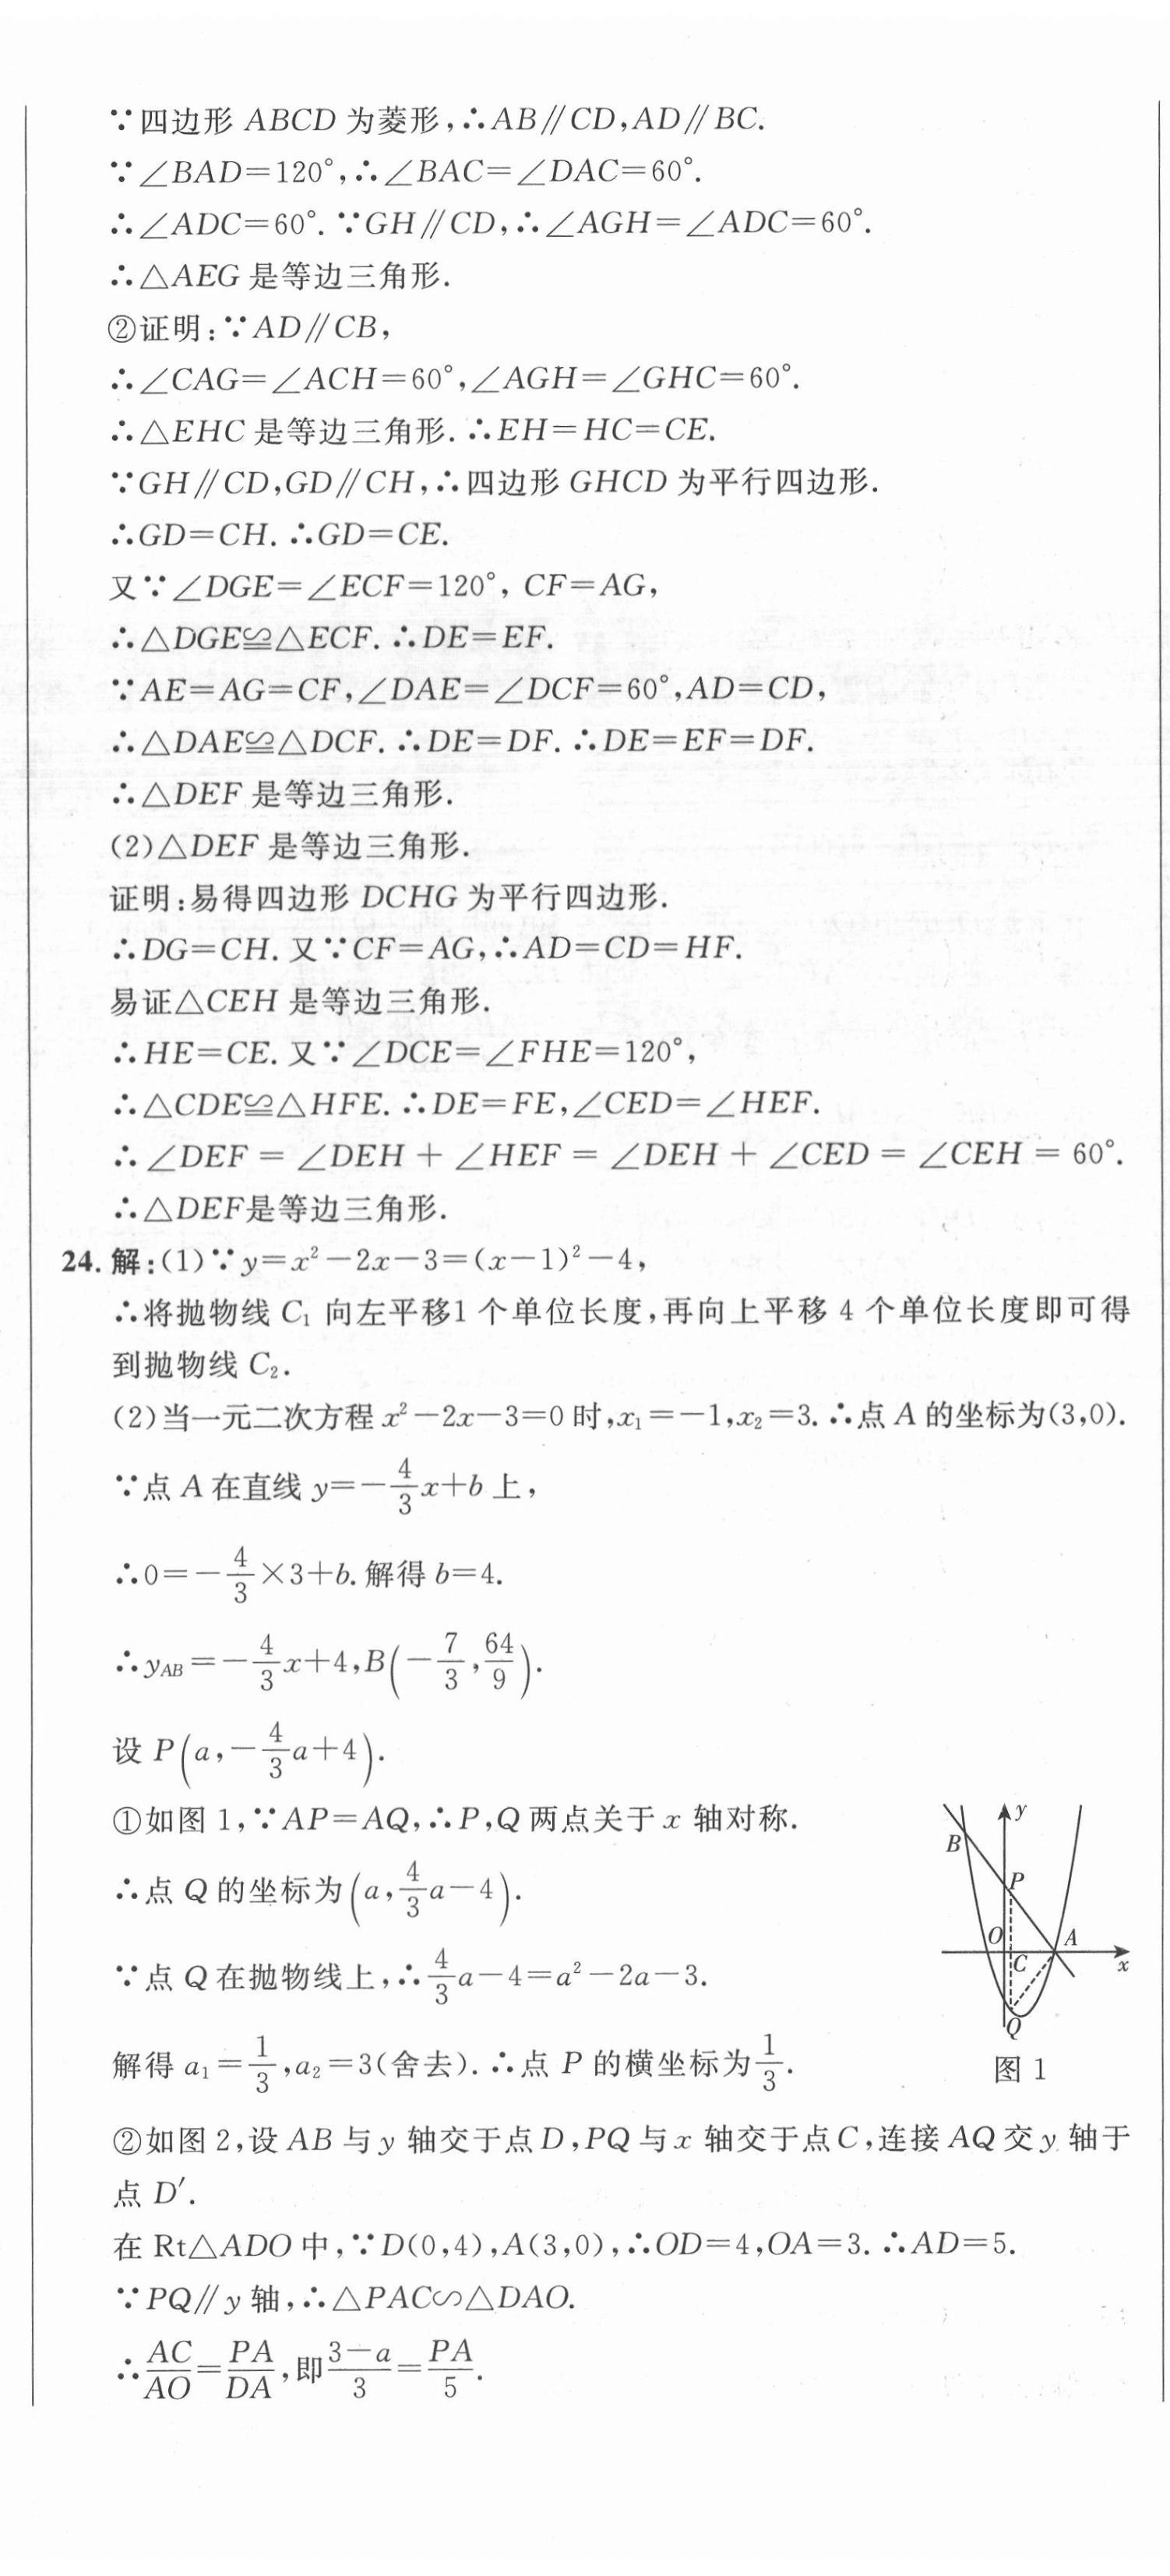 ∵四边形 ABCD 为菱形,∴AB∥CD,AD∥BC.
∵∠BAD=120°,∴∠BAC=∠DAC=60°.
∴∠ADC=60°.∵GH∥CD,∴∠AGH=∠ADC=60°.
∴△AEG 是等边三角形.
②证明:∵AD∥CB,
∴∠CAG=∠ACH=60°,∠AGH=∠GHC=60°.
∴△EHC 是等边三角形.∴EH=HC=CE.
∵GH∥CD,GD∥CH,∴四边形 GHCD 为平行四边形.
∴GD=CH.∴GD=CE.
又∵∠DGE=∠ECF=120°, CF=AG,
∴△DGE≌△ECF.∴DE=EF.
∵AE=AG=CF,∠DAE=∠DCF=60°,AD=CD,
∴△DAE≌△DCF.∴DE=DF.∴DE=EF=DF.
∴△DEF 是等边三角形.
(2)△DEF 是等边三角形.
证明:易得四边形 DCHG 为平行四边形.
∴DG=CH.又∵CF=AG,∴AD=CD=HF.
易证△CEH 是等边三角形.
∴HE=CE.又∵∠DCE=∠FHE=120°,
∴△CDE≌△HFE.∴DE=FE,∠CED=∠HEF.
∴∠DEF = ∠DEH + ∠HEF = ∠DEH + ∠CED = ∠CEH = 60°.
∴△DEF是等边三角形.
24. 解:(1)∵y=x²-2x-3=(x-1)²-4,
∴将抛物线 C₁ 向左平移1 个单位长度,再向上平移 4 个单位长度即可得
到抛物线 C₂.
(2)当一元二次方程 x²-2x-3=0 时,x₁=-1,x₂=3.∴点 A 的坐标为(3,0).
∵点 A 在直线 y=-4/3x+b 上,
∴0=-4/3×3+b.解得 b=4.
∴y_AB=-4/3x+4,B(-7/3,64/9).
设 P(a,-4/3a+4).
①如图 1,∵AP=AQ,∴P,Q 两点关于 x 轴对称.
∴点 Q 的坐标为(a,4/3a-4).
∵点 Q 在抛物线上,∴4/3a-4=a²-2a-3.
解得 a₁=1/3,a₂=3(舍去).∴点 P 的横坐标为1/3.
y
B
P
O
A
C
x
Q
图 1
②如图 2,设 AB 与 y 轴交于点 D,PQ 与 x 轴交于点 C,连接 AQ 交 y 轴于
点 D′.
在 Rt△ADO 中,∵D(0,4),A(3,0),∴OD=4,OA=3.∴AD=5.
∵PQ∥y 轴,∴△PAC∽△DAO.
∴AC/AO=PA/DA,即(3-a)/3=PA/5.